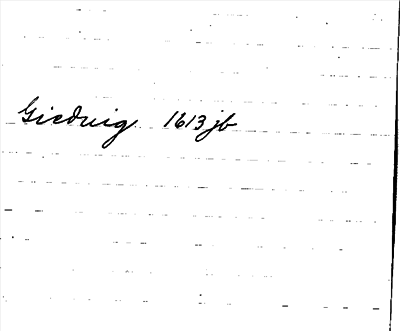 Giedvig 1613 jb